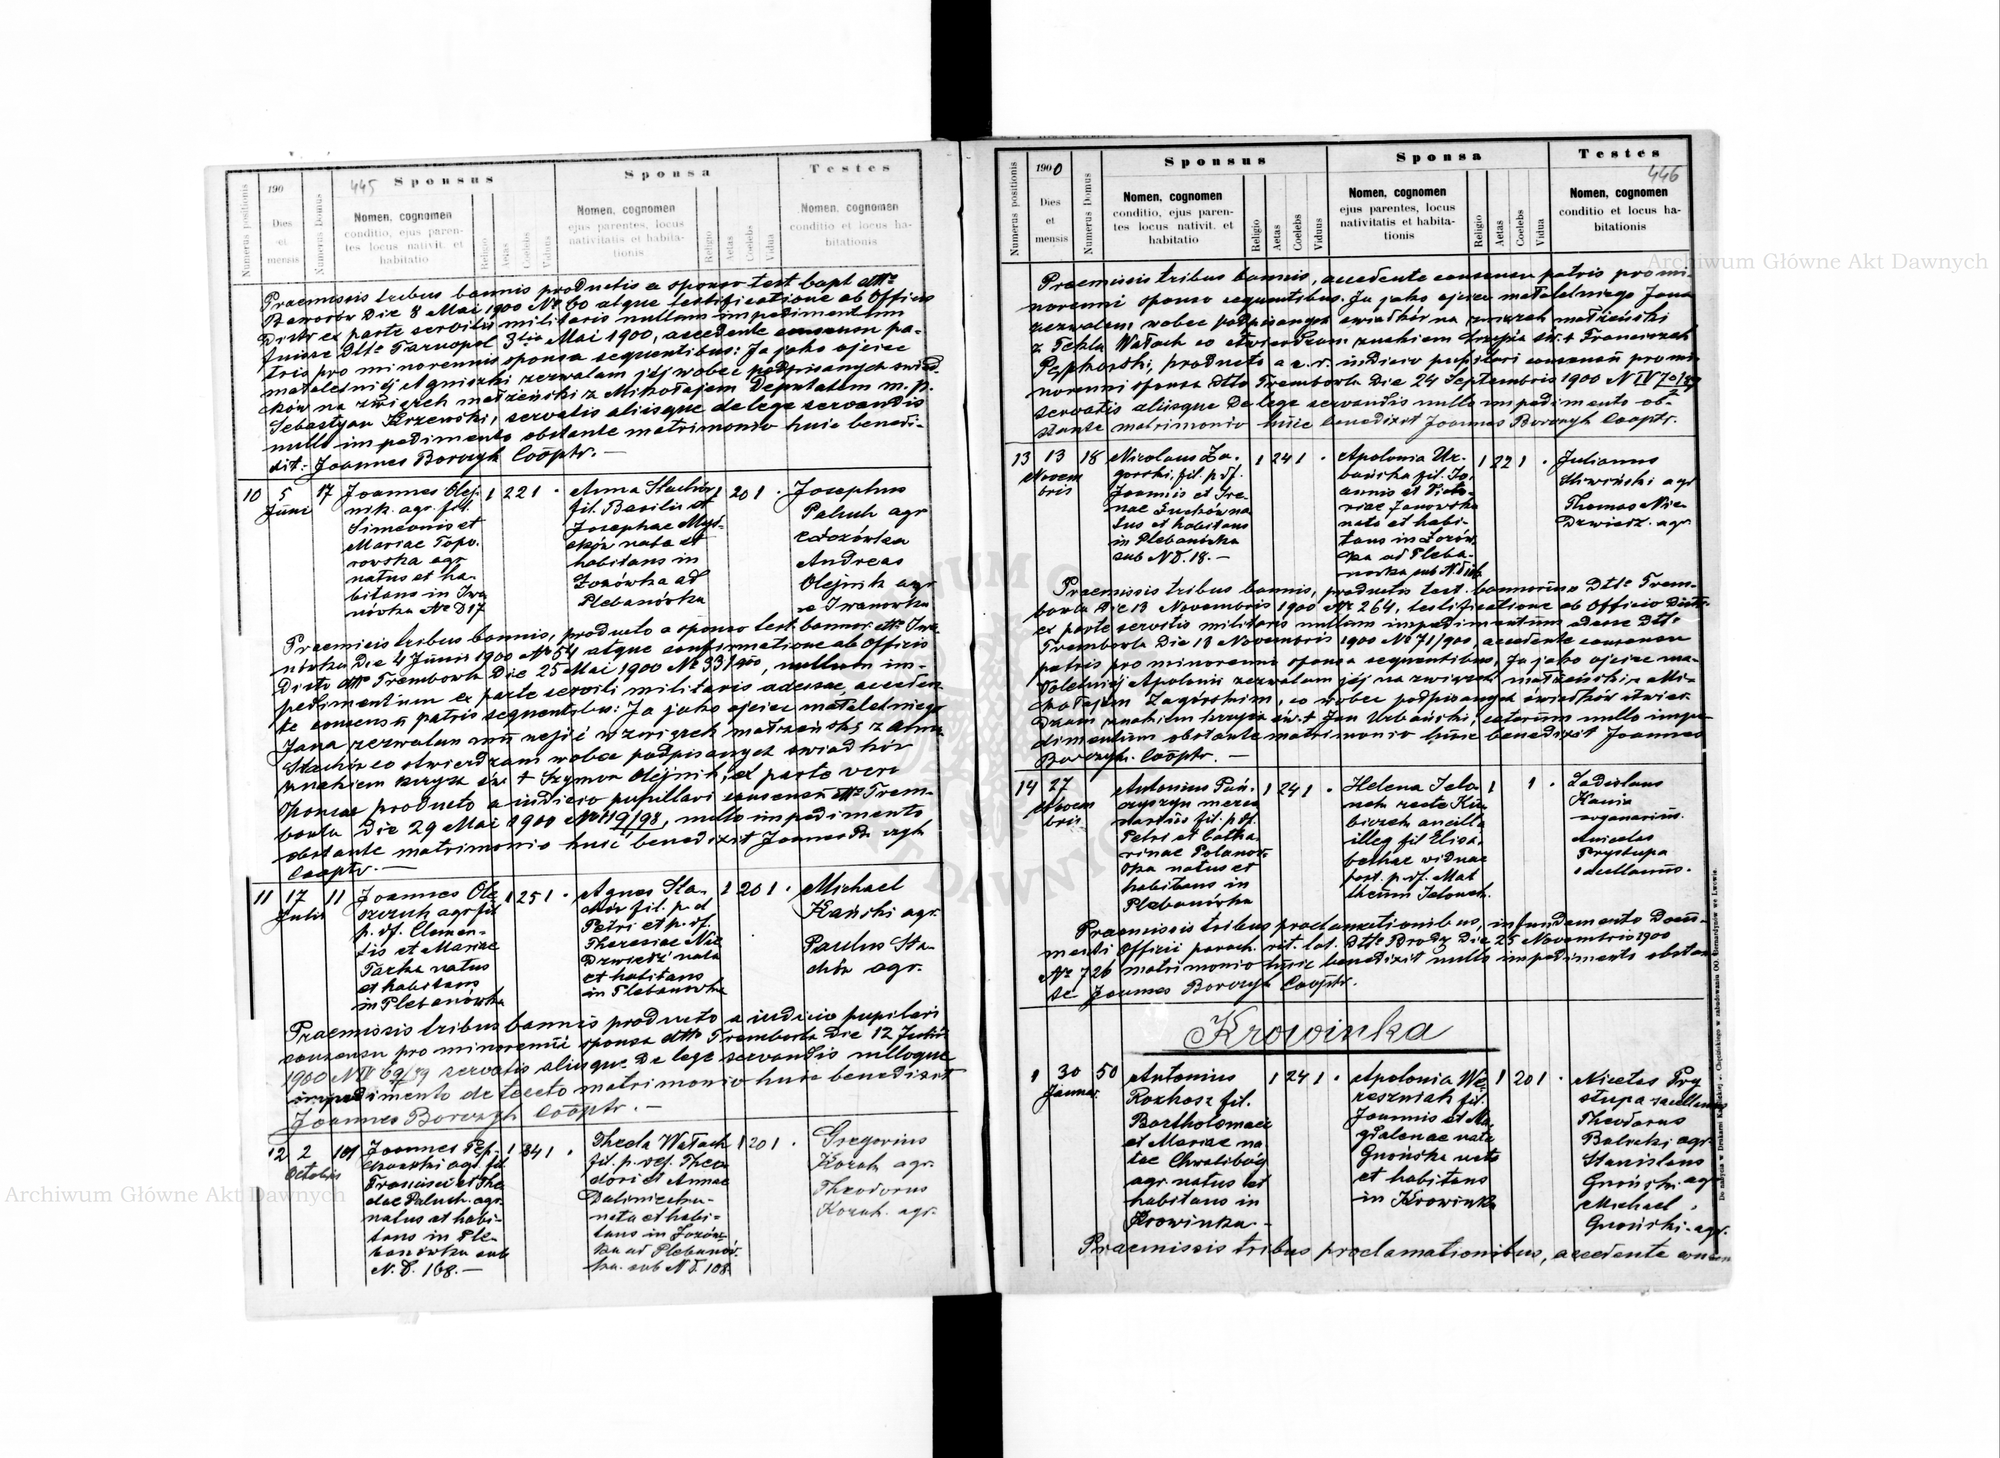 445
Numerus positionis
190
Dies
et
mensis
Numerus Domus
Sponsus
Nomen, cognomen
conditio, ejus paren-
tes locus nativit. et
habitatio
Religio
Aetas
Coelebs
Viduus
Sponsa
Nomen, cognomen
ejus parentes, locus
nativitatis et habita-
tionis
Religio
Aetas
Coelebs
Vidua
Testes
Nomen, cognomen
conditio et locus ha-
bitationis
Praemissis tribus bannis productis a sponso test bapt dtto
Baworów Die 8 Mai 1900 № 60 atque testificatione ab Officio
Distr ex parte servitii militaris nullum impedimentum
fuisse Dtto Tarnopol Mai 1900, accedente consensu pa-
tris pro minorennis sponsa sequentibus: Ja jako ojciec
małoletniej Agnieszki zezwalam jej wobec podpisanych świad
ków na związek małżeński z Mikołajem Deputatem m. p.
Sebastyan Krzewski, servatis aliisque de lege servandis
nullo impedimento obstante matrimonio huic benedi-
xit: Joannes Borczyk Cooptr. —
10
5
Juni
17
Joannes Olej-
nik. agr. fil.
Simeonis et
Mariae Topo-
rowska agr
natus et ha-
bitans in Iwa
nówka № D 17
1
22
1
Anna Stachów
fil. Basilii et
Josephae Myś-
ków nata et
habitans in
Łozówka ad
Plebanówka
1
20
1
Josephus
Paluch agr
e Łozówka
Andreas
Olejnik agr
e Iwanówka
Praemissis tribus bannis, producto a sponso test. bannor. dtto Iwa-
nówka Die 4 Junii 1900 № 54 atque confirmatione ab Officio
Distr dtto Trembowla Die 25 Mai 1900 № 33/900, nullum im-
pedimentum ex parte servitii militaris adesse, acceden-
te consensu patris sequentibus: Ja jako ojciec małoletniego
Jana zezwalam mu wejść w związek małżeński z Anną
Stachów co stwierdzam wobec podpisanych świadków
znakiem krzyża św. + Szymon Olejnik, ex parte vero
sponsae producto a iudicio pupillari consensu dtto Trem-
bowla Die 29 Mai 1900 № 119/98, nullo impedimento
obstante matrimonio huic benedixit Joannes Borczyk
Cooptr. —
11
17
Julii
11
Joannes Ole
szczuk agr fil
p. df. Clemen-
tis et Mariae
Tarka natus
et habitans
in Plebanówka
1
25
1
Agnes Sta-
chów fil. p. d
Petri et p. df.
Theresiae Nie
Dzwiedź nata
et habitans
in Plebanówka
1
20
1
Michael
Kański agr.
Paulus Sta-
chów agr.
Praemissis tribus bannis producto a iudicio pupilari
consensu pro minorenni sponsa dtto Trembowla Die 12 Julii
1900 N IV 69/99 servatis aliisque De lege servandis nulloque
impedimento detecto matrimonio huic benedixit
Joannes Borczyk Cooptr. —
12
2
Octobris
101
Joannes Pęp-
kowski agr. fil.
Francisci et The
clae Paluch. agr.
natus et habi-
tans in Ple-
banówka sub
N. D. 168. —
1
34
1
Thecla Wałach
fil. p. def. Theo
dori et Annae
nata et habi-
tans in Łozów-
ka ad Plebanów-
ka. sub N D. 108.
1
20
1
Gregorius
Kozak agr.
Theodorus
Kozak. agr.
446
Numerus positionis
1900
Dies
et
mensis
Numerus Domus
Sponsus
Nomen, cognomen
conditio, ejus paren-
tes locus nativit. et
habitatio
Religio
Aetas
Coelebs
Viduus
Sponsa
Nomen, cognomen
ejus parentes, locus
nativitatis et habita-
tionis
Religio
Aetas
Coelebs
Vidua
Testes
Nomen, cognomen
conditio et locus ha-
bitationis
Praemissis tribus bannis, accedente consensu patris pro mi-
norenni sponso sequentibus. Ja jako ojciec małoletniego Jana
zezwalam wobec podpisanych świadków na związek małżeński
z Teklą Wałach co stwierdzam znakiem krzyża św. + Franciszek
Pępkowski, producto a c. r. iudicio pupilari consensu pro mi-
norenni sponsa dtto Trembowla Die 24 Septembris 1900 N IV 70/99
servatis aliisque De lege servandis nullo impedimento ob-
stante matrimonio huic benedixit Joannes Borczyk Cooptr.
13
13
Novem
bris
18
Nicolaus Za-
gorski, fil. p. df.
Joannis et Ire-
nae Żuków na
tus et habitans
in Plebanówka
sub N D. 18. —
1
24
1
Apolonia Ur-
bańska fil. Jo-
annis et Victo-
riae Janowska
nata et habi-
tans in Łozów-
ka ad Pleba-
nówka sub N.D
1
22
1
Julianus
Śliwiński agr
Thomas Nie-
Dzwiedź. agr.
Praemissis tribus bannis, producto test. bannorum Dtto Trem-
bowla Die 13 Novembris 1900 № 264, testificatione ab Officio Distr.
ex parte servitii militaris nullum impedimentum adesse Dtto
Trembowla Die 13 Novembris 1900 № 71/900, accedente consensu
patris pro minorenni sponsa sequentibus, Ja jako ojciec ma-
łoletniej Apolonii zezwalam jej na związek małżeński z Mi-
kołajem Zagórskim, co wobec podpisanych świadków stwier
dzam znakiem krzyża św. + Jan Urbański, caeterum nullo impe
dimentum obstante matrimonio huic benedixit Joannes
Borczyk. Cooptr. —
14
27
Novem
bris
Antonius Pań-
czyszyn merce
narius fil. p. df.
Petri et Catha
rinae Polanow-
ska natus et
habitans in
Plebanówka
1
24
1
Helena Jelo-
nek recte Kin
biczek ancilla
illeg fil Elisa-
bethae viduae
post. p. df. Mat
theum Jelonek.
1
1
Ladislaus
Kania
organarius.
Nicolas
Prystupa
sacellanus.
Praemissis tribus proclamationibus, in fundamento Docu-
menti Officii paroch. rit. lat. Dtto Brody Die 25 Novembris 1900
№ 726 matrimonio huic benedixit nullo impedimento obstan
te Joannes Borczyk Cooptr.
Krowinka
1
30
Januar.
50
Antonius
Rozkosz fil.
Bartholomaei
et Mariae na
tae Chwalibóg
agr natus et
habitans in
Krowinka. -
1
24
1
Apolonia We-
reszniak fil.
Joannis et Ma
gdalenae nata
Gnońska nata
et habitans
in Krowinka
1
20
1
Nicetas Pry
stupa sacellanus
Theodorus
Balicki agr.
Stanislaus
Gnoński agr
Michael
Gnoński. agr.
Praemissis tribus proclamationibus, accedente consen
Archiwum Główne Akt Dawnych
Archiwum Główne Akt Dawnych